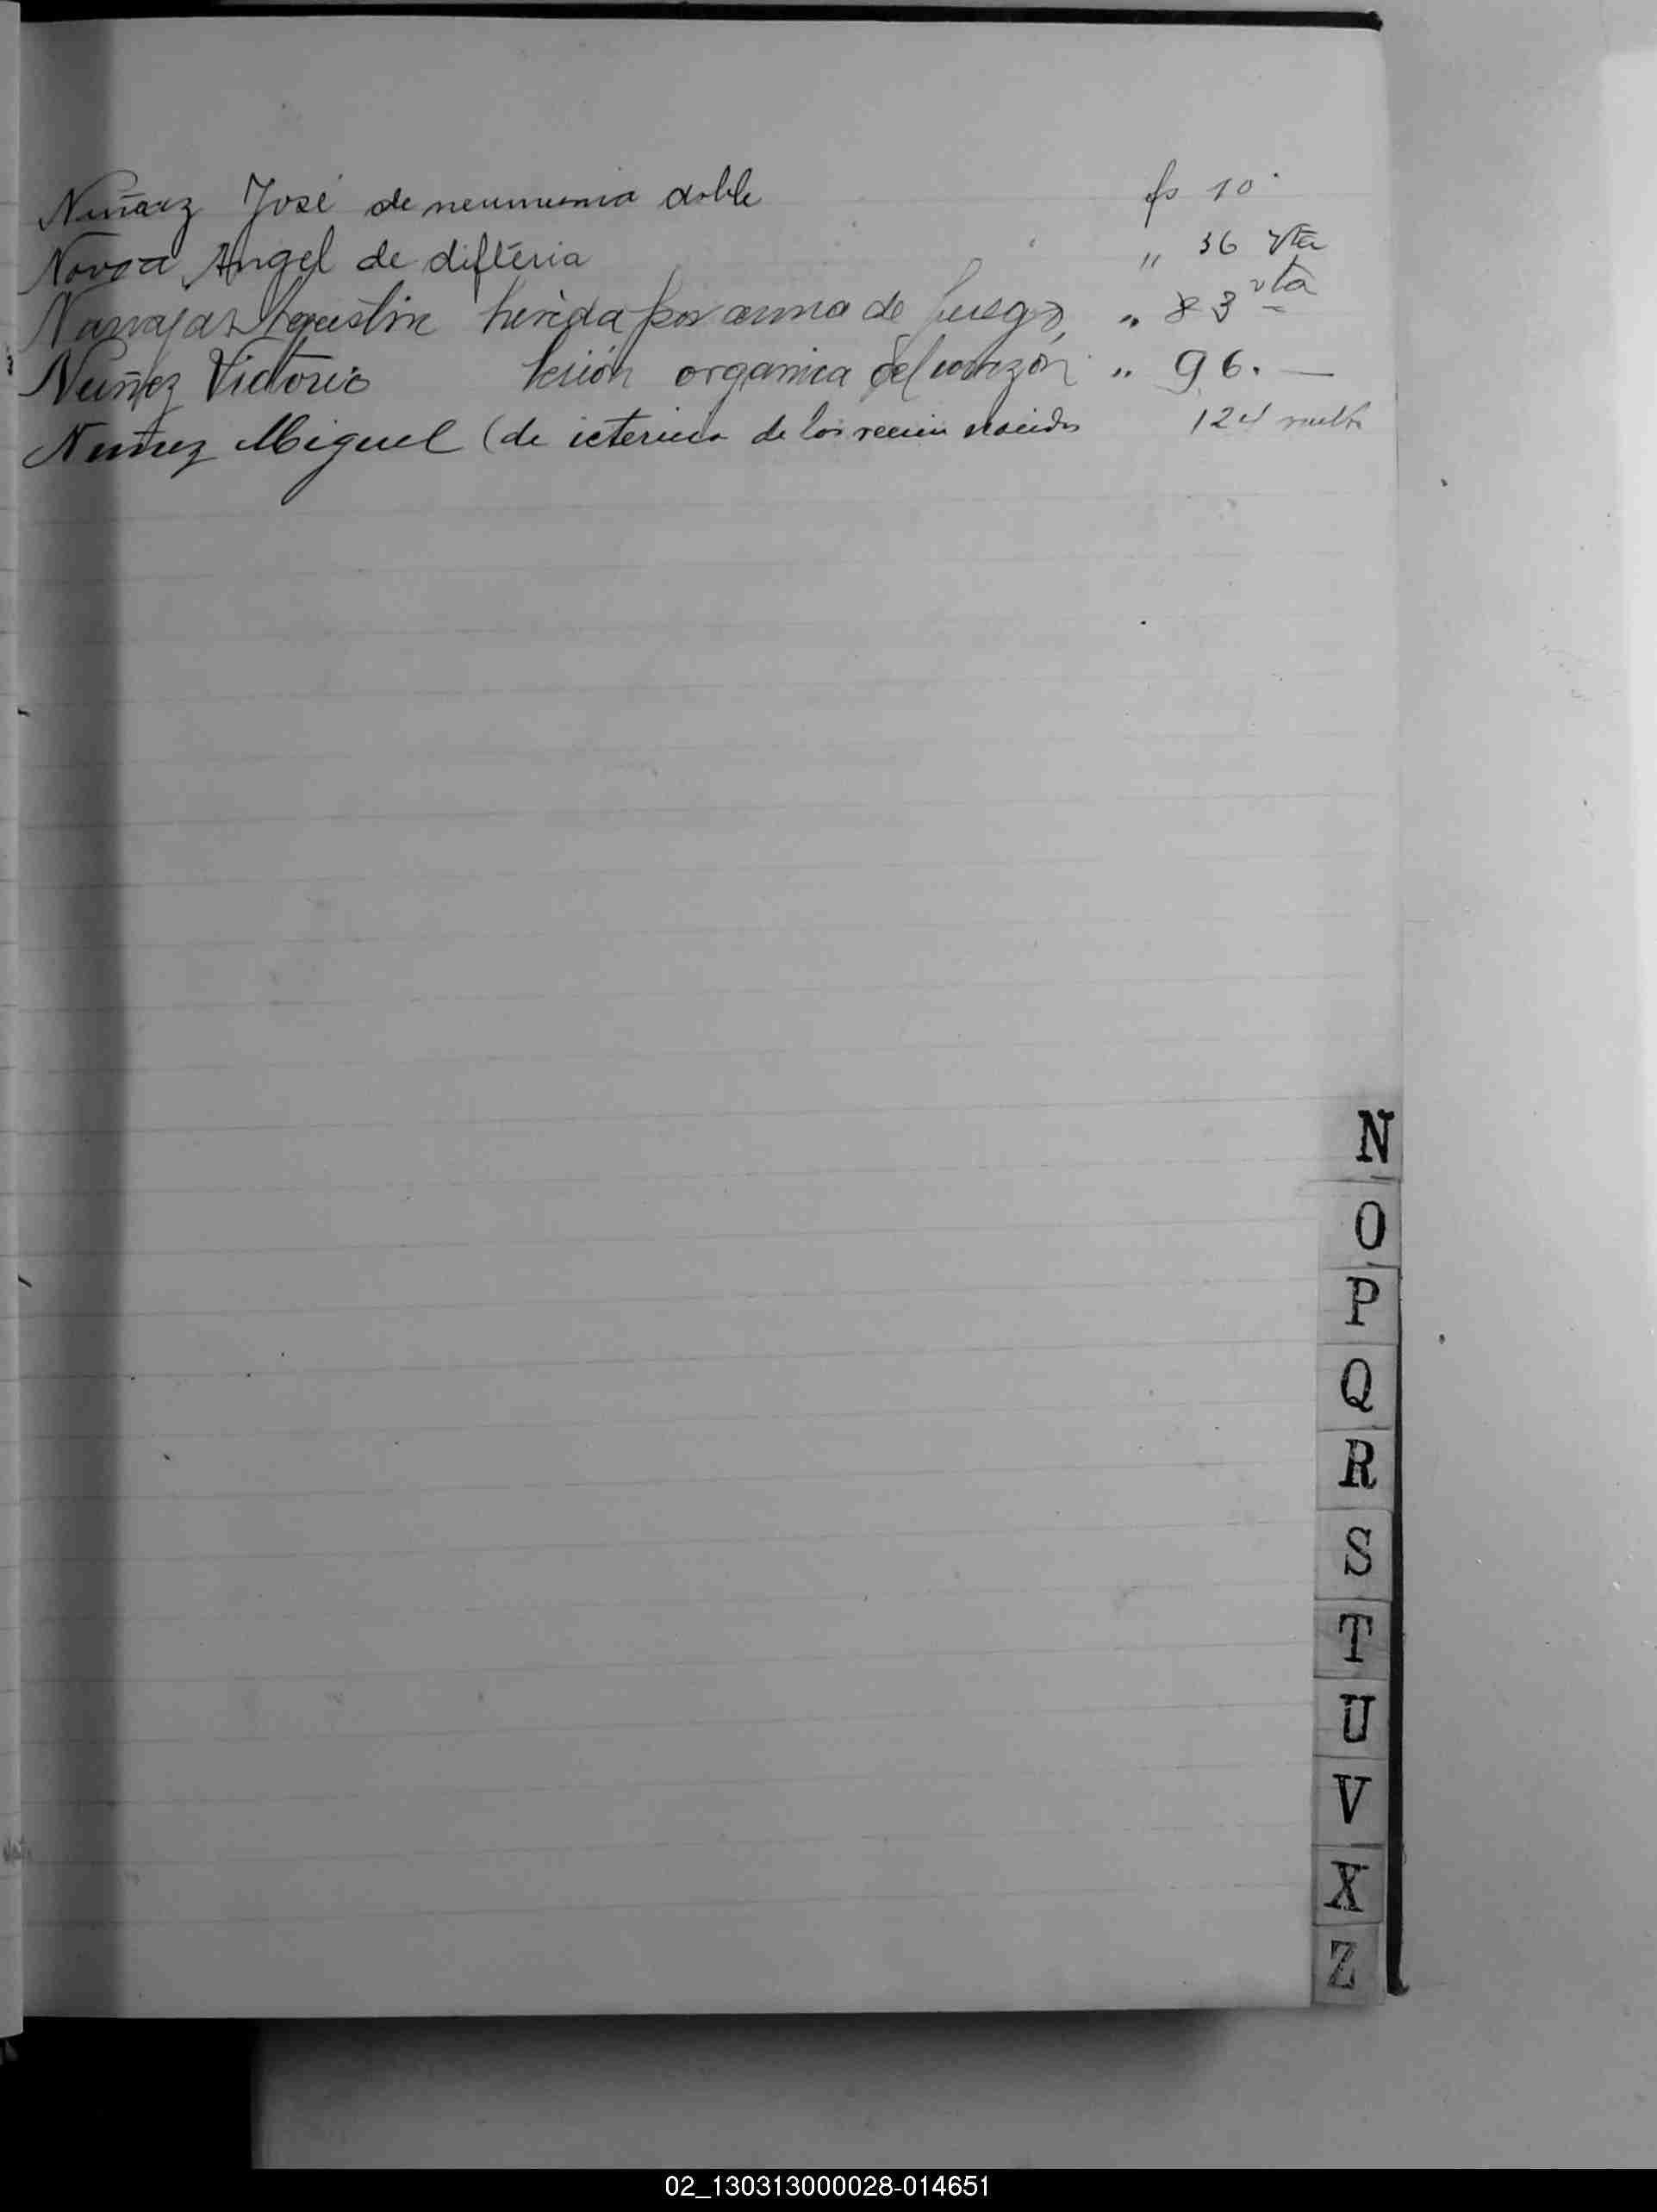 Nuñez José de neumonia doble fs 10
Novoa Angel de diftéria " 36 vta
Navajas Agustin herida por arma de fuego, " 83 vta
Nuñez Victorio lesión organica del corazón " 96. —
Nuñez Miguel (de ictericia de los recien nacidos 124 vuelta
N
O
P
Q
R
S
T
U
V
X
Z
02_130313000028-014651